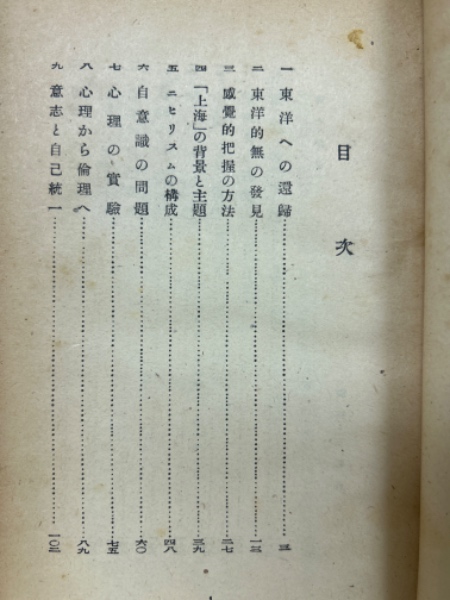 目次
一 東洋への還歸……三
二 東洋的無の發見……一三
三 感覺的把握の方法……二七
四 「上海」の背景と主題……三九
五 ニヒリズムの構成……四八
六 自意識の問題……六〇
七 心理の實驗……七五
八 心理から倫理へ……八九
九 意志と自己統一……一〇二